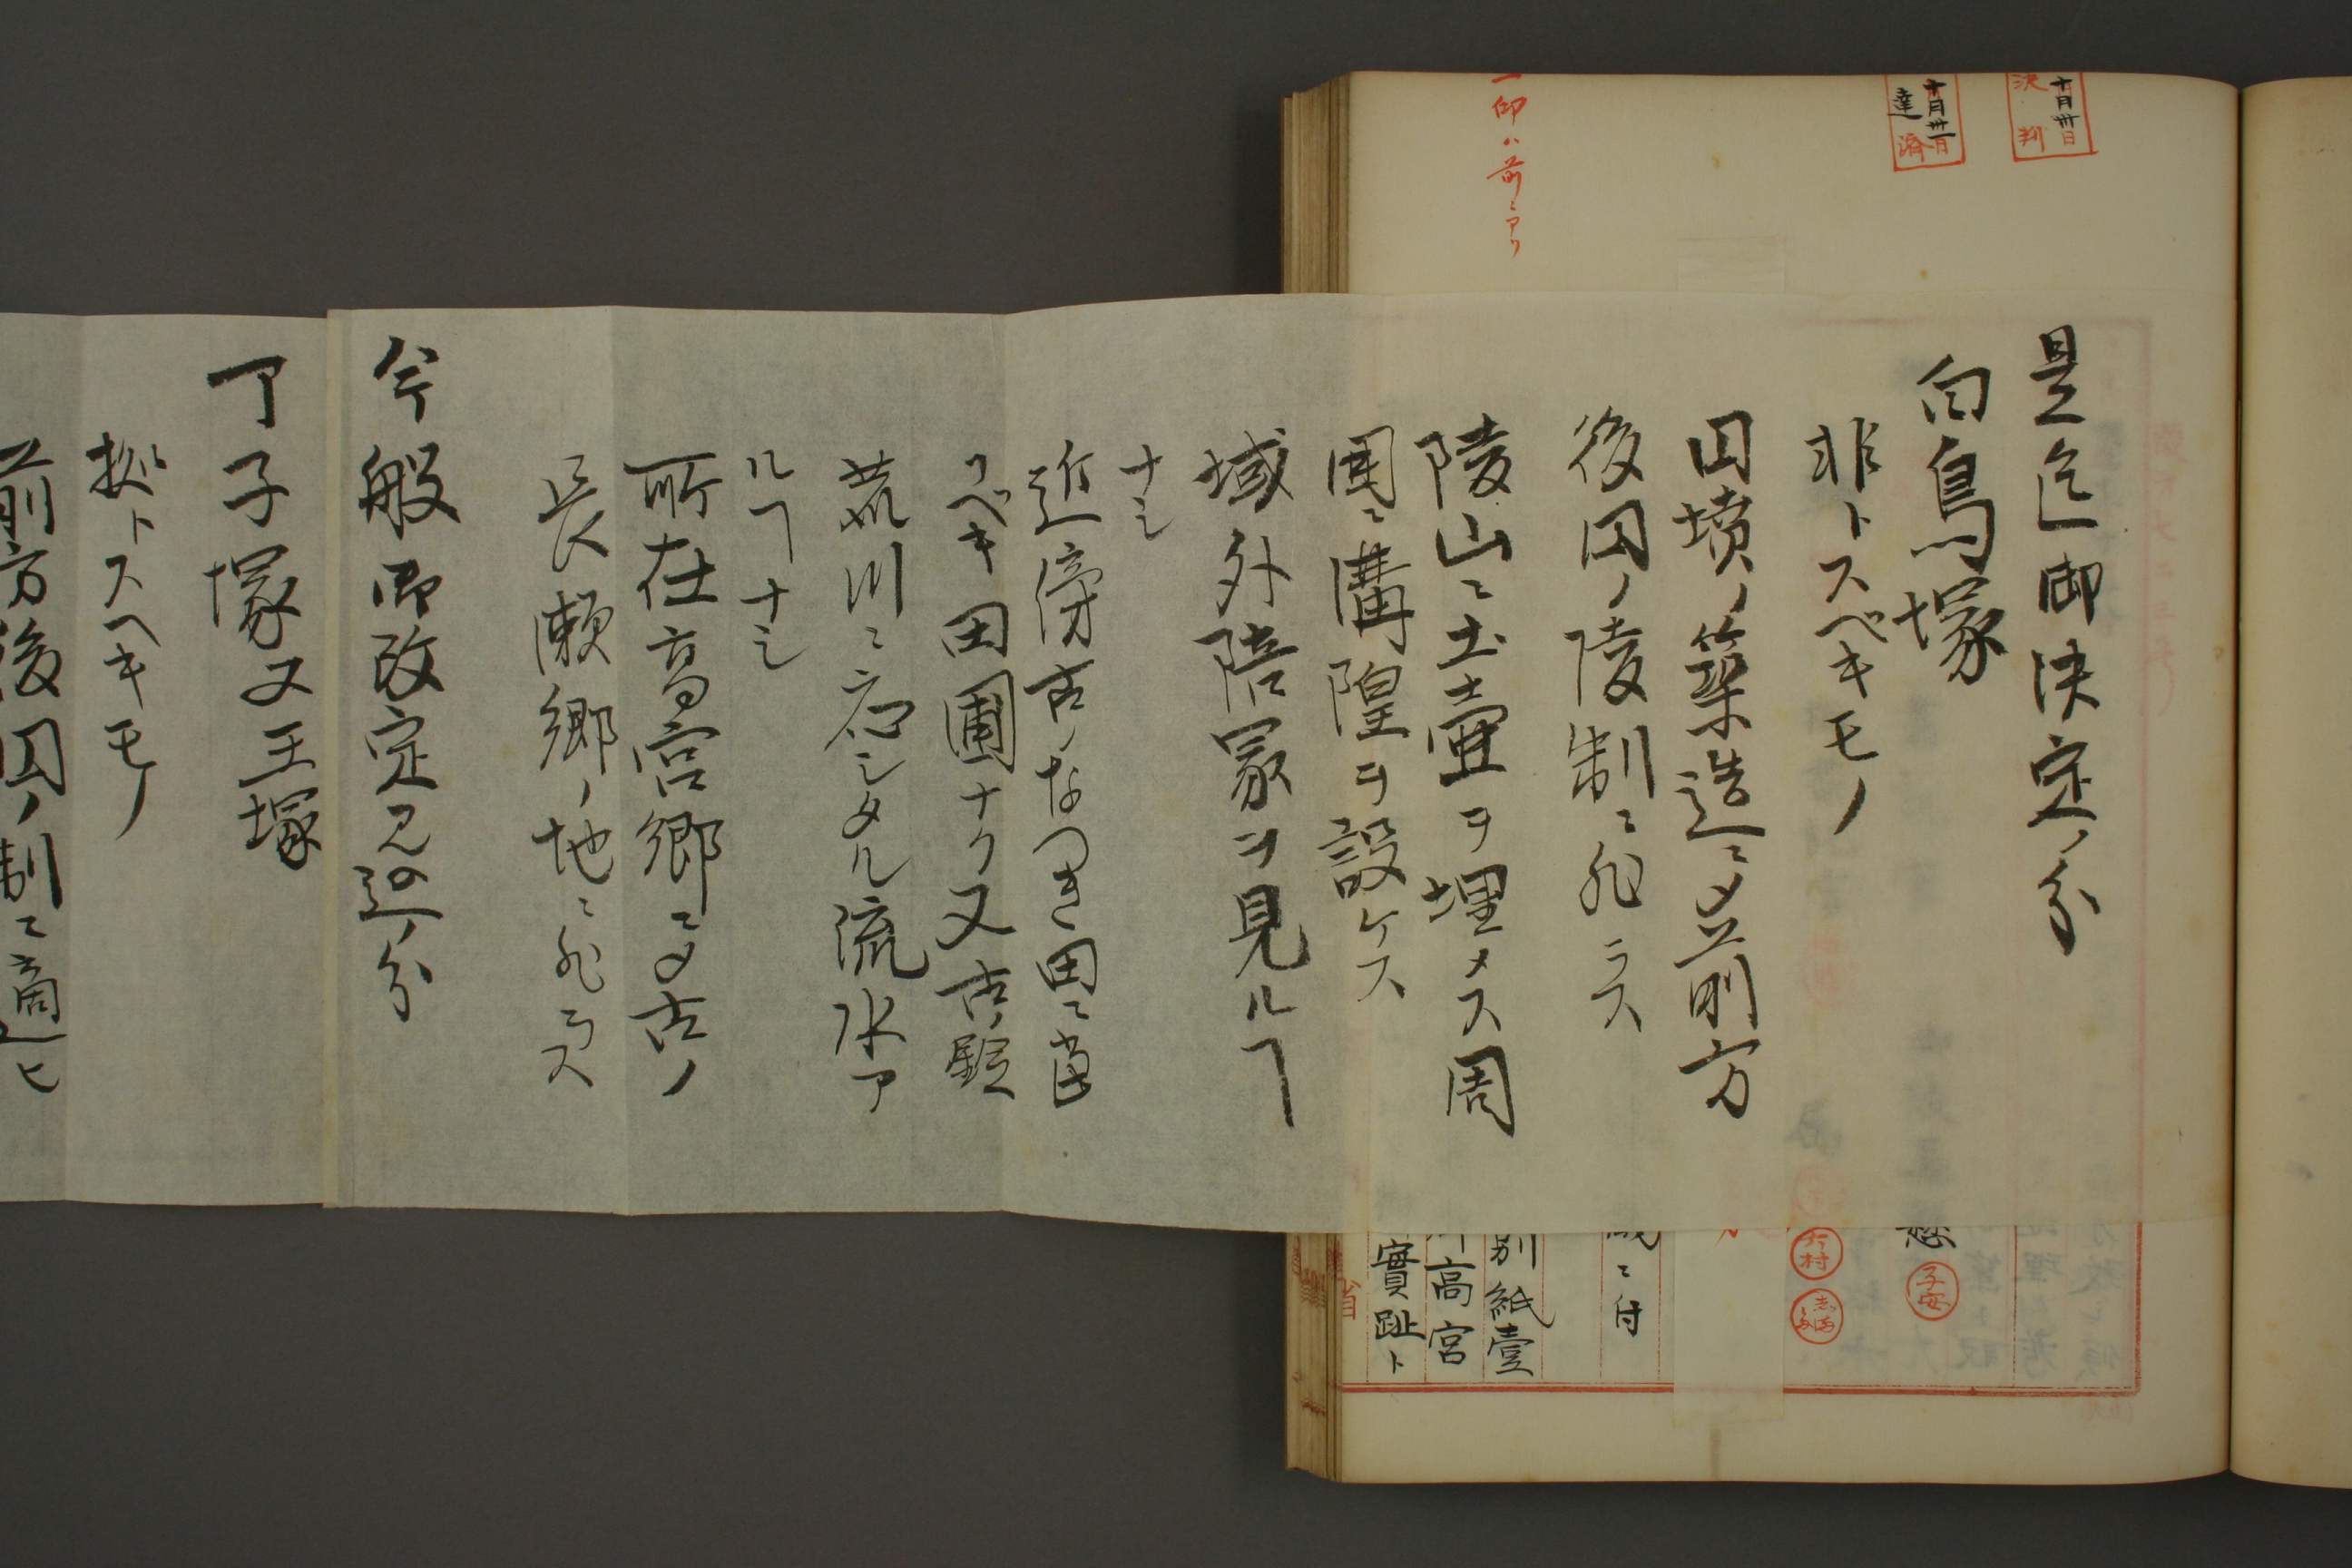 十月卅日
決判
十月卅一日
達済
一印ハ前ニアリ
是迄御决定ノ分
白鳥塚
非トスベキモノ
円墳ノ築造ニメ前方
後円ノ陵制ニ非ラス
陵山ニ土壷ヲ埋メス周
囲ニ溝隍ヲ設ケス
域外陪冢ヲ見ルヿ
ナシ
近傍古ノなつき田ニ当
ツベキ田圃ナク又古ノ
荒川ニ応シタル流水ア
ルヿナシ
所在高宮郷ニメ古ノ
長瀬郷ノ地ニ非ラス
今般御改定見込ノ分
丁子塚又王塚
拠トスヘキモノ
前方後円ノ制ニ適ヒ
子安
六村
ニ付
別紙壹
高宮
實趾ト
省